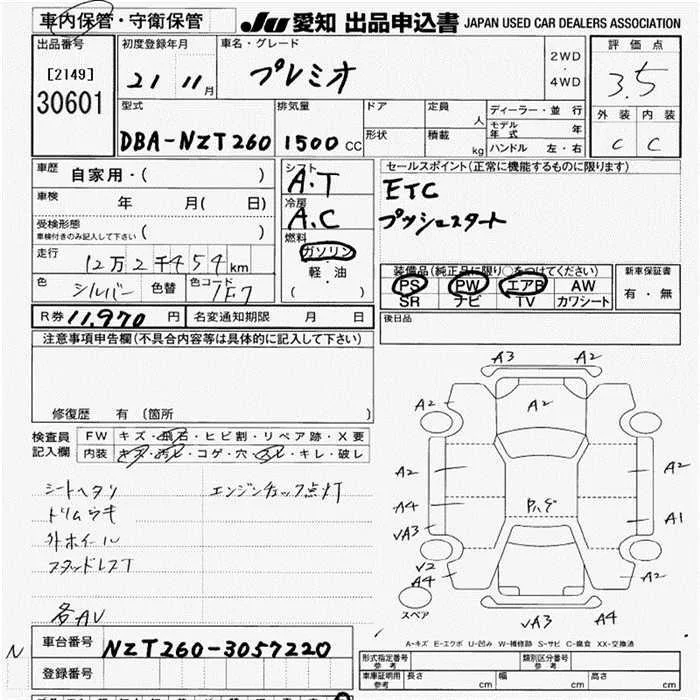 車内保管・守衛保管 Ju 愛知 出品申込書 JAPAN USED CAR DEALERS ASSOCIATION
出品番号 [2149] 30601
初度登録年月 21 11月
車名・グレード プレミオ 2WD・4WD
評価点 3.5
外装 内装
C C
型式 DBA-NZT260
排気量 1500 CC
ドア 定員 人
形状 積載 kg
ディーラー・並行
モデル年式 年
ハンドル 左・右
車歴 自家用・( )
車検 年 月( 日)
受検形態 ( )
車検付きのみ記入して下さい
走行 12万2千454km
色 シルバー 色替 色コード 1F7
シフト A.T
冷房 A.C
燃料 ガソリン・軽油
( )
セールスポイント(正常に機能するものに限ります)
ETC
プッシュスタート
装備品(純正品に限り○をつけてください)
PS PW エアB AW
SR ナビ TV カワシート
新車保証書
有・無
R券 11,970 円 名変通知期限 月 日
後日品
注意事項申告欄(不具合内容等は具体的に記入して下さい)
修復歴 有 (箇所 )
検査員記入欄
FW キズ・飛石・ヒビ割・リペア跡・X要
内装 キズ・汚レ・コゲ・穴・スレ・キレ・破レ
シートヘタリ エンジンチェック点灯
トリムウキ
外ホイール
スタッドレスT
各AV
A3 A2
A2 A2
A2 A2
A4 A1
VA3 Rハゲ
V2
A4 A2
スペア
VA3 A4
A-キズ E-エクボ U-凹み W-補修跡 S-サビ C-腐食 XX-交換済
N
車台番号 NZT260-3057220
登録番号
形式指定番号 参考 類別区分番号 参考
車庫証明用 参考 長さ cm 幅 cm 高さ cm